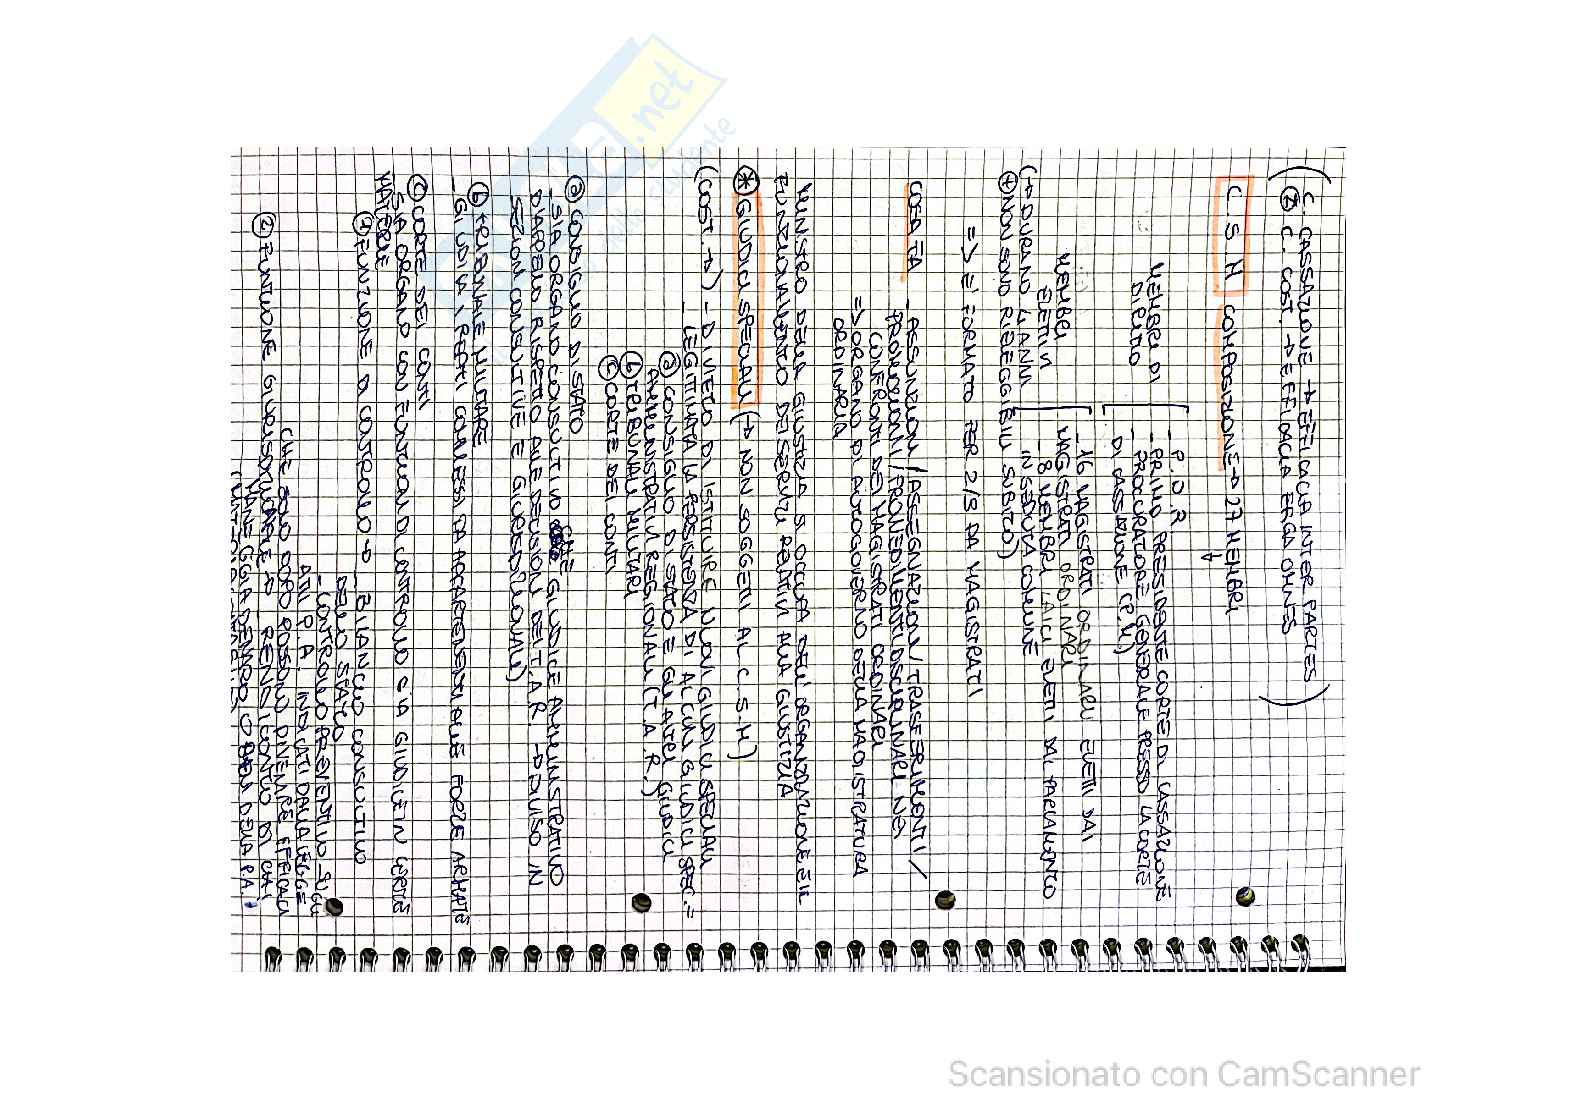 (C. CASSAZIONE → EFFICACIA INTER PARTES
* C. COST. → EFFICACIA ERGA OMNES)
C.S.M COMPOSIZIONE → 27 MEMBRI
↓
MEMBRI DI DIRITTO
_ P.D.R
_ PRIMO PRESIDENTE CORTE DI CASSAZIONE
_ PROCURATORE GENERALE PRESSO LA CORTE
DI CASSAZIONE (P.M.)
MEMBRI ELETTIVI
_ 16 MAGISTRATI ORDINARI ELETTI DAI
MAGISTRATI ORDINARI
_ 8 MEMBRI LAICI ELETTI DAL PARLAMENTO
IN SEDUTA COMUNE
(→ DURANO 4 ANNI
+ NON SONO RIELEGGIBILI SUBITO)
=> E' FORMATO PER 2/3 DA MAGISTRATI
COSA FA _ ASSUNZIONI / ASSEGNAZIONI / TRASFERIMENTI /
PROMOZIONI / PROVVEDIMENTI DISCIPLINARI NEI
CONFRONTI DEI MAGISTRATI ORDINARI
=> ORGANO DI AUTOGOVERNO DELLA MAGISTRATURA
ORDINARIA
MINISTRO DELLA GIUSTIZIA SI OCCUPA DELL'ORGANIZZAZIONE E IL
FUNZIONAMENTO DEI SERVIZI RELATIVI ALLA GIUSTIZIA
* GIUDICI SPECIALI (→ NON SOGGETTI AL C.S.M)
(COST. →) _ DIVIETO DI ISTITUIRE NUOVI GIUDICI SPECIALI
_ LEGITTIMATA LA PERSISTENZA DI ALCUNI GIUDICI SPEC. =
a CONSIGLIO DI STATO E GLI ALTRI GIUDICI
AMMINISTRATIVI REGIONALI (T.A.R.)
b TRIBUNALI MILITARI
c CORTE DEI CONTI
a CONSIGLIO DI STATO
_ SIA ORGANO CONSULTIVO CHE GIUDICE AMMINISTRATIVO
D'APPELLO RISPETTO ALLE DECISIONI DEI T.A.R. → DIVISO IN
SEZIONI CONSULTIVE E GIURISDIZIONALI)
b TRIBUNALE MILITARE
_ GIUDICA I REATI COMMESSI DA APPARTENENTI ALLE FORZE ARMATE
c CORTE DEI CONTI
_ SIA ORGANO CON FUNZIONI DI CONTROLLO SIA GIUDICE IN CERTE
MATERIE
1 FUNZIONE DI CONTROLLO → _ BILANCIO CONSUNTIVO
DELLO STATO
_ CONTROLLO PREVENTIVO SUGLI
ATTI P.A. INDICATI DALLA LEGGE
CHE SOLO DOPO POSSONO DIVENTARE EFFICACI
2 FUNZIONE GIURISDIZIONALE → _ RENDICONTO DI CHI
MANEGGIA DENARO O BENI DELLA P.A.